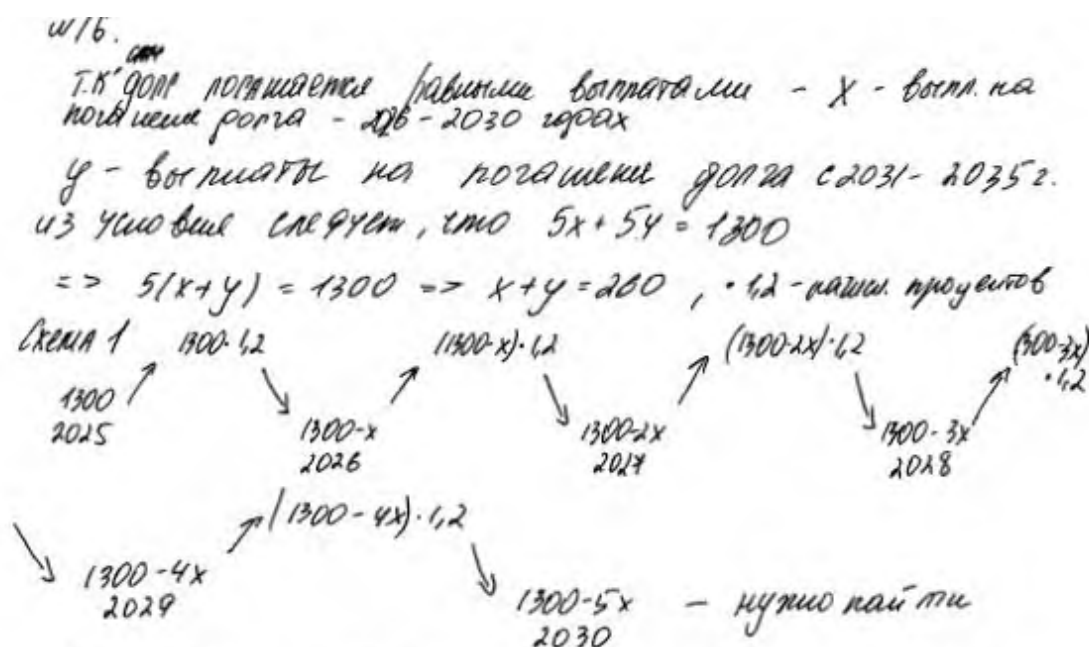 N16.
Т.К. долг погашается равными выплатами - x - выпл. на
погашение долга - 2026 - 2030 годах
y - выплаты на погашение долга с 2031 - 2035 г.
из условия следует, что 5x + 5y = 1300
=> 5(x+y) = 1300 => x+y = 260 , · 1,2 - начисл. процентов
Схема 1 1300·1,2 (1300-x)·1,2 (1300-2x)·1,2 (1300-3x)·1,2
1300 2025 1300-x 2026 1300-2x 2027 1300-3x 2028
(1300-4x)·1,2
1300-4x 2029 1300-5x 2030 - нужно найти